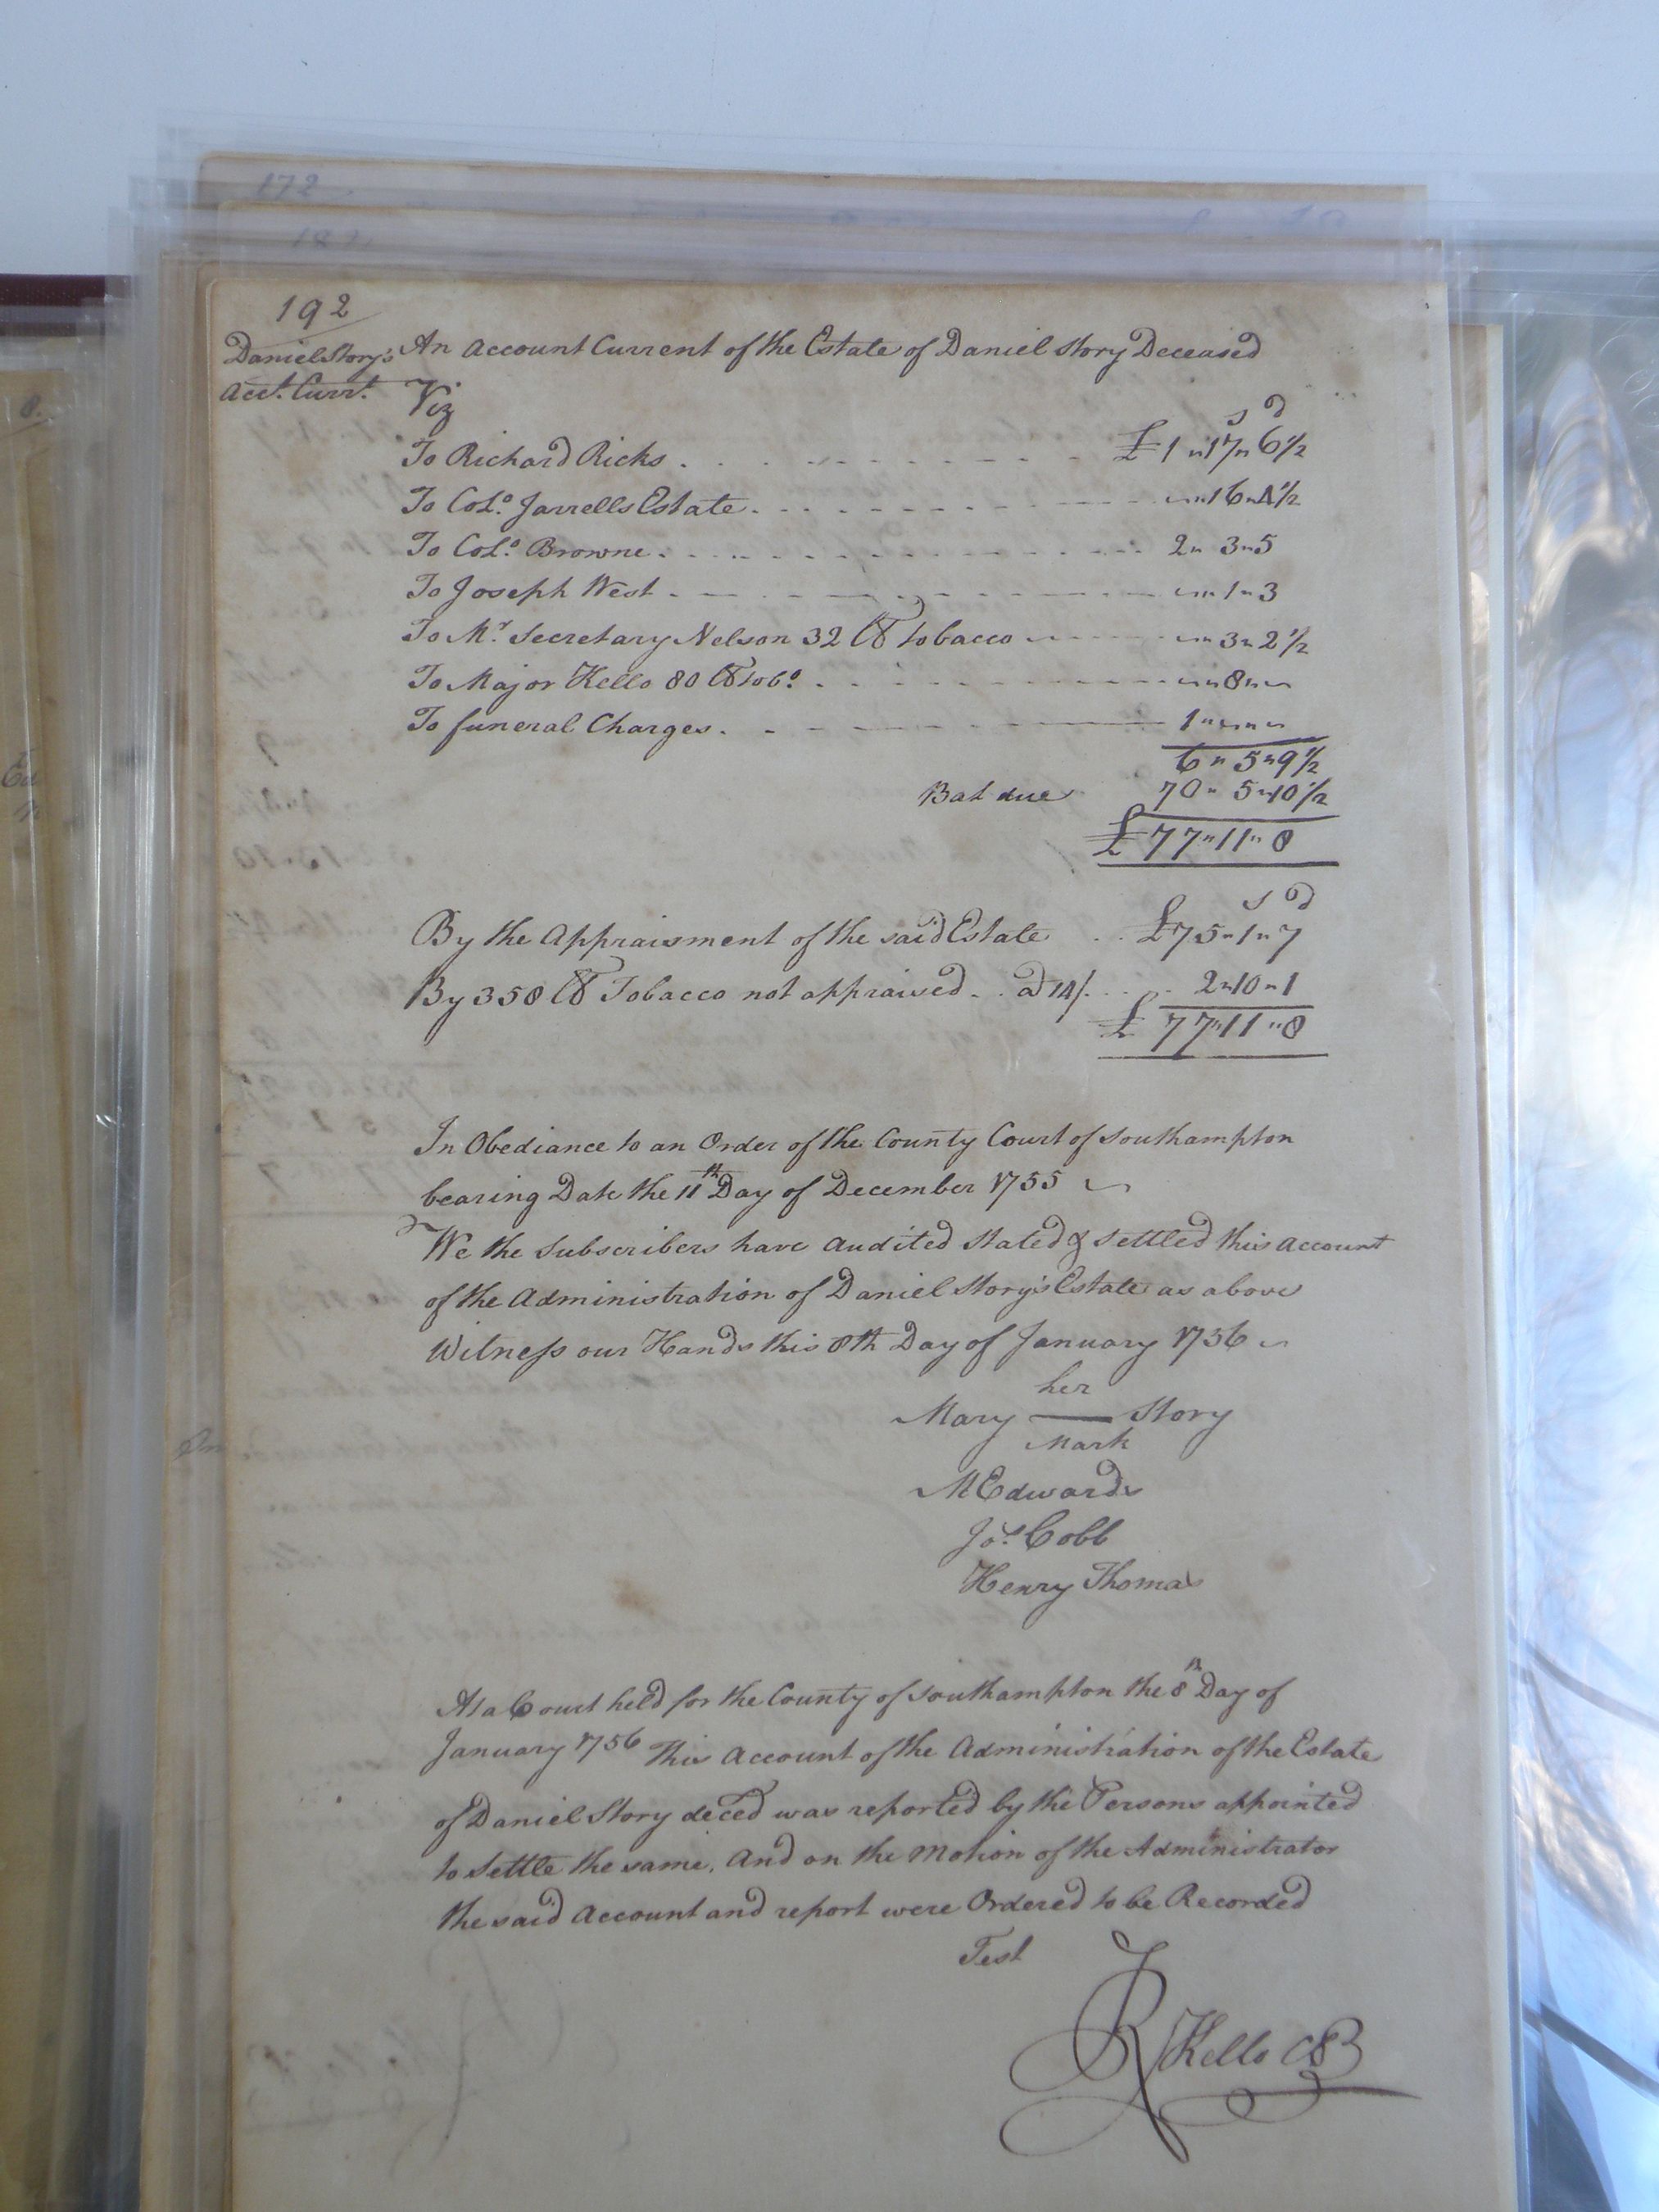 172
192
Daniel Story's
Acct. Curt.
An Account Current of the Estate of Daniel Story Deceased
Viz
s d
To Richard Ricks . . . £ 1 " 17 " 6 1/2
To Colo. Jarrells Estate . . . " 16 " 4 1/2
To Colo. Browne . . . 2 " 3 " 5
To Joseph West . . . " 1 " 3
To Mr. Secretary Nelson 32 lb Tobacco . . . " 3 " 2 1/2
To Major Kello 80 lb tobo. . . . " 8 "
To funeral Charges . . . 1 " "
6 " 5 " 9 1/2
Bal due 70 " 5 " 10 1/2
£ 77 " 11 " 8
s d
By the Appraisment of the said Estate . . £ 75 " 1 " 7
By 358 lb Tobacco not appraised . . ad 14/. . . . 2 " 10 " 1
£ 77 " 11 " 8
In Obediance to an Order of the County Court of Southampton
bearing Date the 11th Day of December 1755
We the Subscribers have Audited Stated & Settled this Account
of the Administration of Daniel Story's Estate as above
Witness our Hands this 8th Day of January 1756
her
Mary — Story
Mark
MEdwards
Jos. Cobb
Henry Thomas
At a Court held for the County of Southampton the 8th Day of
January 1756 This Account of the Administration of the Estate
of Daniel Story deced was reported by the Persons appointed
to Settle the same, And on the Motion of the Administrator
the said Account and report were Ordered to be Recorded
Test
R Kello